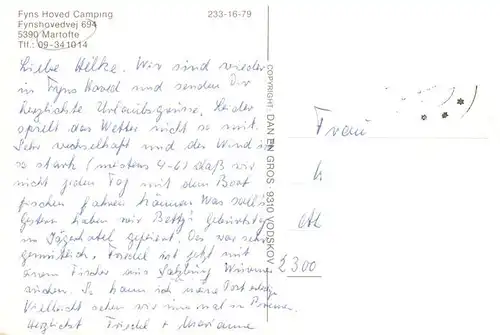 Fyns Hoved Camping
Fynshovedvej 694
5390 Martofte
Tlf.: 09-341014
233-16-79
Liebe Hilke. Wir sind wieder
in Fyns Hoved und senden Dir
herzlichste Urlaubsgrüsse. Leider
spielt das Wetter nicht so mit.
Sehr wechselhaft und der Wind ist
so stark (meistens 4-6) daß wir
nicht jeden Tag mit dem Boot
fischen fahren können. Was soll's
Gestern haben wir Betty's Geburtstag
im Jägerhotel gefeiert. Das war sehr
gemütlich. Friedel ist jetzt mit
einem Fischer aus Salzburg Würmer
suchen. So kann ich meine Post
Vielleicht sehen wir uns mal in
Herzlichst Friedel + Marianne
COPYRIGHT DAN EN GROS 9310 VODSKOV
Frau
2300